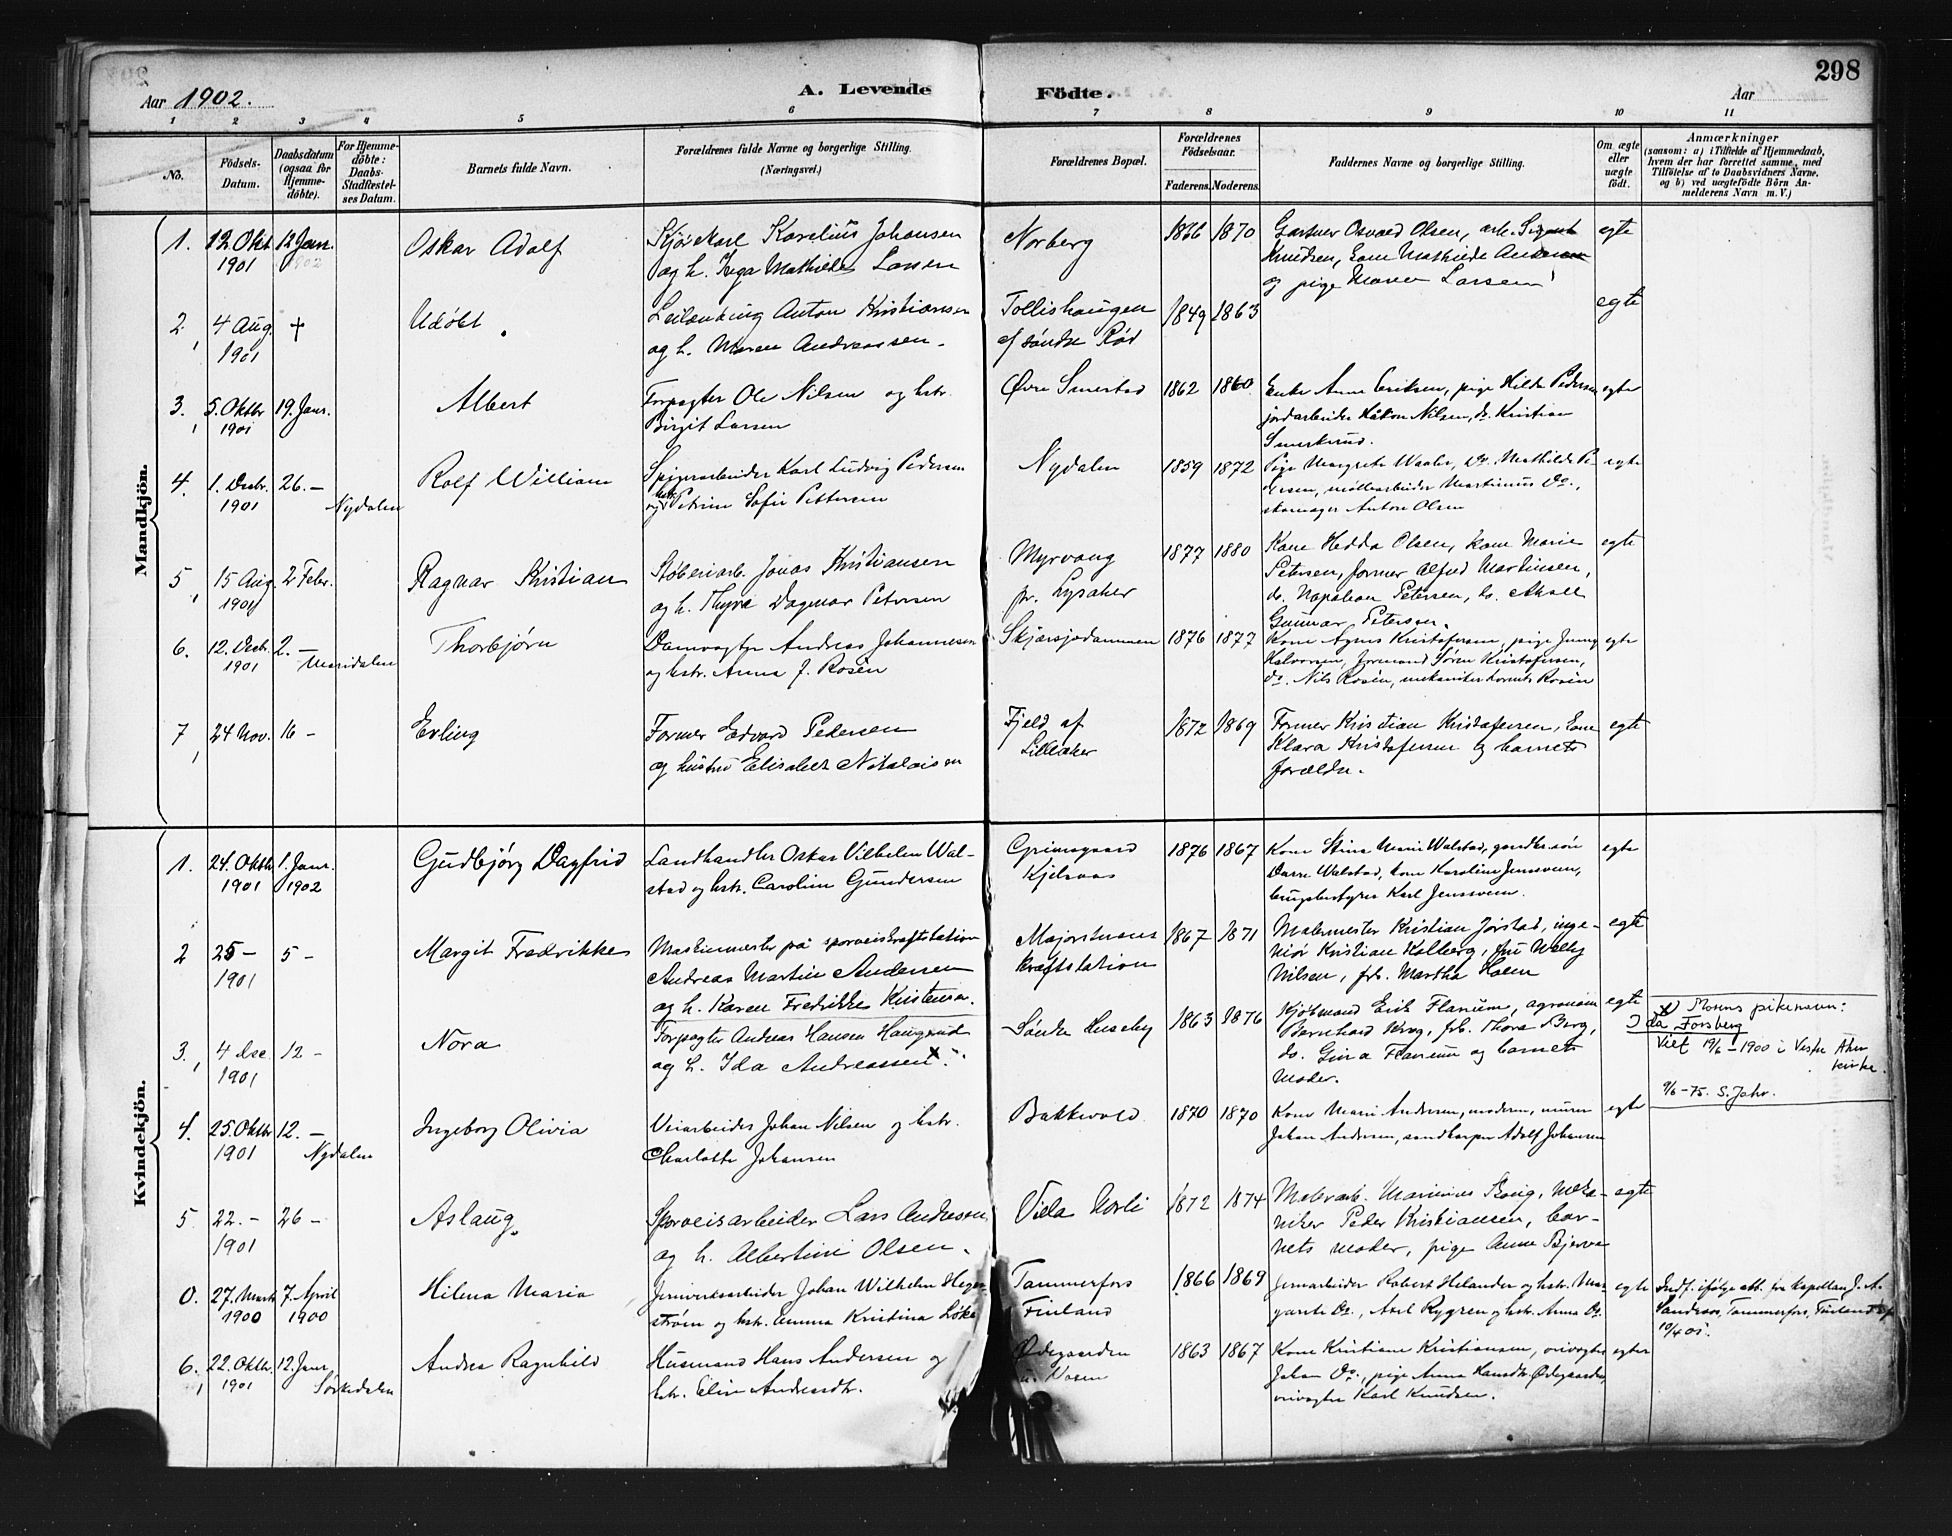 298
Aar 1902.
A. Levende Födte.
Aar
1 2 3 4 5 6 7 8 9 10 11
No.
Födsels-Datum.
Daabsdatum (ogsaa for Hjemme-döbte).
For Hjemme-döbte: Daabs-Stadfæstel-ses Datum.
Barnets fulde Navn.
Forældrenes fulde Navne og borgerlige Stilling.
(Næringsvei.)
Forældrenes Bopæl.
Forældrenes Födselsaar.
Faderens. Moderens.
Faddernes Navne og borgerlige Stilling.
Om ægte eller uægte födt.
Anmærkninger
(saasom: a) i Tilfælde af Hjemmedaab, hvem der har forrettet samme, med Tilföielse af to Daabsvidners Navne, og b) ved uægtefödte Börn An-melderens Navn m. V.)
Mandkjön.
1. 12. Okt. 12 Jan. Oskar Adolf Kjørekarl Karelius Johansen Norberg 1866 1870 Gartner Osvald Olsen, arb. egte
1901 1902 og h. Inga Mathilde Larsen Knudsen, Kone Mathilde
og pige Maren Larsen
2, 4 Aug. † Udöbt. Leilænding Anton Kristiansen Tollishaugen 1849 1863 egte
1901 og h. Maren Andreassen. af söndre Röd
3, 5. Oktbr 19. Janr. Albert Forpagter Ole Nilsen og hstr. Øvre Smestad 1862 1860 Enke Anne Eriksen, pige Hilda Pedersen egte
1901 Birgit Larsen jordarbeider Håkon Nilsen, do. Kristian
Smestad.
4. 1. Decbr. 26. – Nydalen Rolf William Spigerarbeider Karl Ludvig Pedersen Nydalen 1859 1872 Pige Margrete Waaler, Do. Mathilde Pe- egte
1901 og hstr. Petrine Sofie Pettersen dersen, möllearbeider Martinius Do.,
skomager Anton Olsen
5, 15 Aug. 2 Febr. Ragnar Kristian Støberiarb. Jonas Kristiansen Myrvang 1877 1880 Kone Hedda Olsen, kone Marie egte
1901 og h. Thyra Dagmar Petersen pr. Lysaker Petersen, former Alfred Martinsen,
do. Napoleon Petersen, do. Aksel
Gunnar Petersen.
6. 12. Decbr. 2. – Maridalen Thorbjørn Damvogter Andreas Johannesen Skjærsjødammen 1876 1877 Kone Agnes Kristofersen, pige Jenny egte
1901 og hstr. Anna J. Rosén Halvorsen, formand Søren Kristofersen,
do. Nils Rosén, mekaniker Rosén
7, 24 Nov. 16 – Erling Former Edvard Pedersen Fjeld af 1872 1869 Former Kristian Kristofersen, Kone egte
og hustru Elisabet Nikolaisen Lilleaker Klara Kristofersen og barnets
forældre.
Kvindekjön.
1. 24. Oktbr. 1. Janr. Gudbjörg Dagfrid Landhandler Oskar Vilhelm Wal- Grimsgaard 1876 1867 Kone Stina Marie Walstad, gaardbr.sön egte
1901 1902 stad og hstr. Caroline Gundersen Kjelsaas Walstad, kone Karoline Jenssveen,
brugsbestyrer Karl Jenssveen.
2 25 – 5 – Margit Fredrikke Maskinmester på sporveiskraftstation Majorstuens 1867 1871 Malermester Kristian Jørstad, inge- egte
1901 Andreas Martin Andersen kraftstation niør Kristian Holberg, fru
og h. Karen Fredrikke Kristensen. Nilsen, frk. Martha Holm
3, 4 dec. 12 – Nora Forpagter Andreas Hansen Haugerud Söndre Huseby 1863 1876 Kjöbmand Erik Flarum, agronom egte
1901 og h. Ida Andreassen x Bernhard Krog, frk. Thora Berg,
do. Gina Flarum og barnets
moder.
x) Morens pikenavn:
Ida Forsberg
Viet 19/6 – 1900 i Vestre Aker
kirke.
9/6 – 75. S. Jahr.
4. 25. Oktbr. 12. – Nydalen Ingeborg Olivia Veiarbeider Johan Nilsen og hstr. Bakkevold 1870 1870 Kone Marie Andersen, moderen, murer egte
1901 Charlotte Johansen Johan Andersen, sandkjører Adolf Johansen
5. 22. – 26 – Aslaug. Sporveisarbeider Lars Andresen Villa Norli 1872 1874 Malerarb. Marinius Skoug, meka- egte
1901 og h. Albertine Olsen. niker Peder Kristiansen, bar-
nets moder, pige Anna Bjerva
0. 27. Marts 7. April Hilma Maria Jernverksarbeider Johan Wilhelm Hegge- Tammerfors 1866 1869 Jernarbeider Robert Helander og hstr. Mar- egte
1900 1900 ström og hstr. Emma Kristina Finland garete Do., Axel Rygren og hstr. Anna Do.
Indf. ifølge att. fra Kapellan J. A.
Sandroos, Tammerfors, Finland af
10/4 01.
6. 22. Oktbr. 12. Janr. Sørkedalen Andrea Ragnhild Husmand Hans Andersen og Ødegaarden 1863 1867 Kone Kristiane Kristiansen, veivogter egte
1901 hstr. Eline Andersdtr. u. Johan Do., pige Anna Hansdtr. Ødegaarden,
veivogter Karl Knudsen.